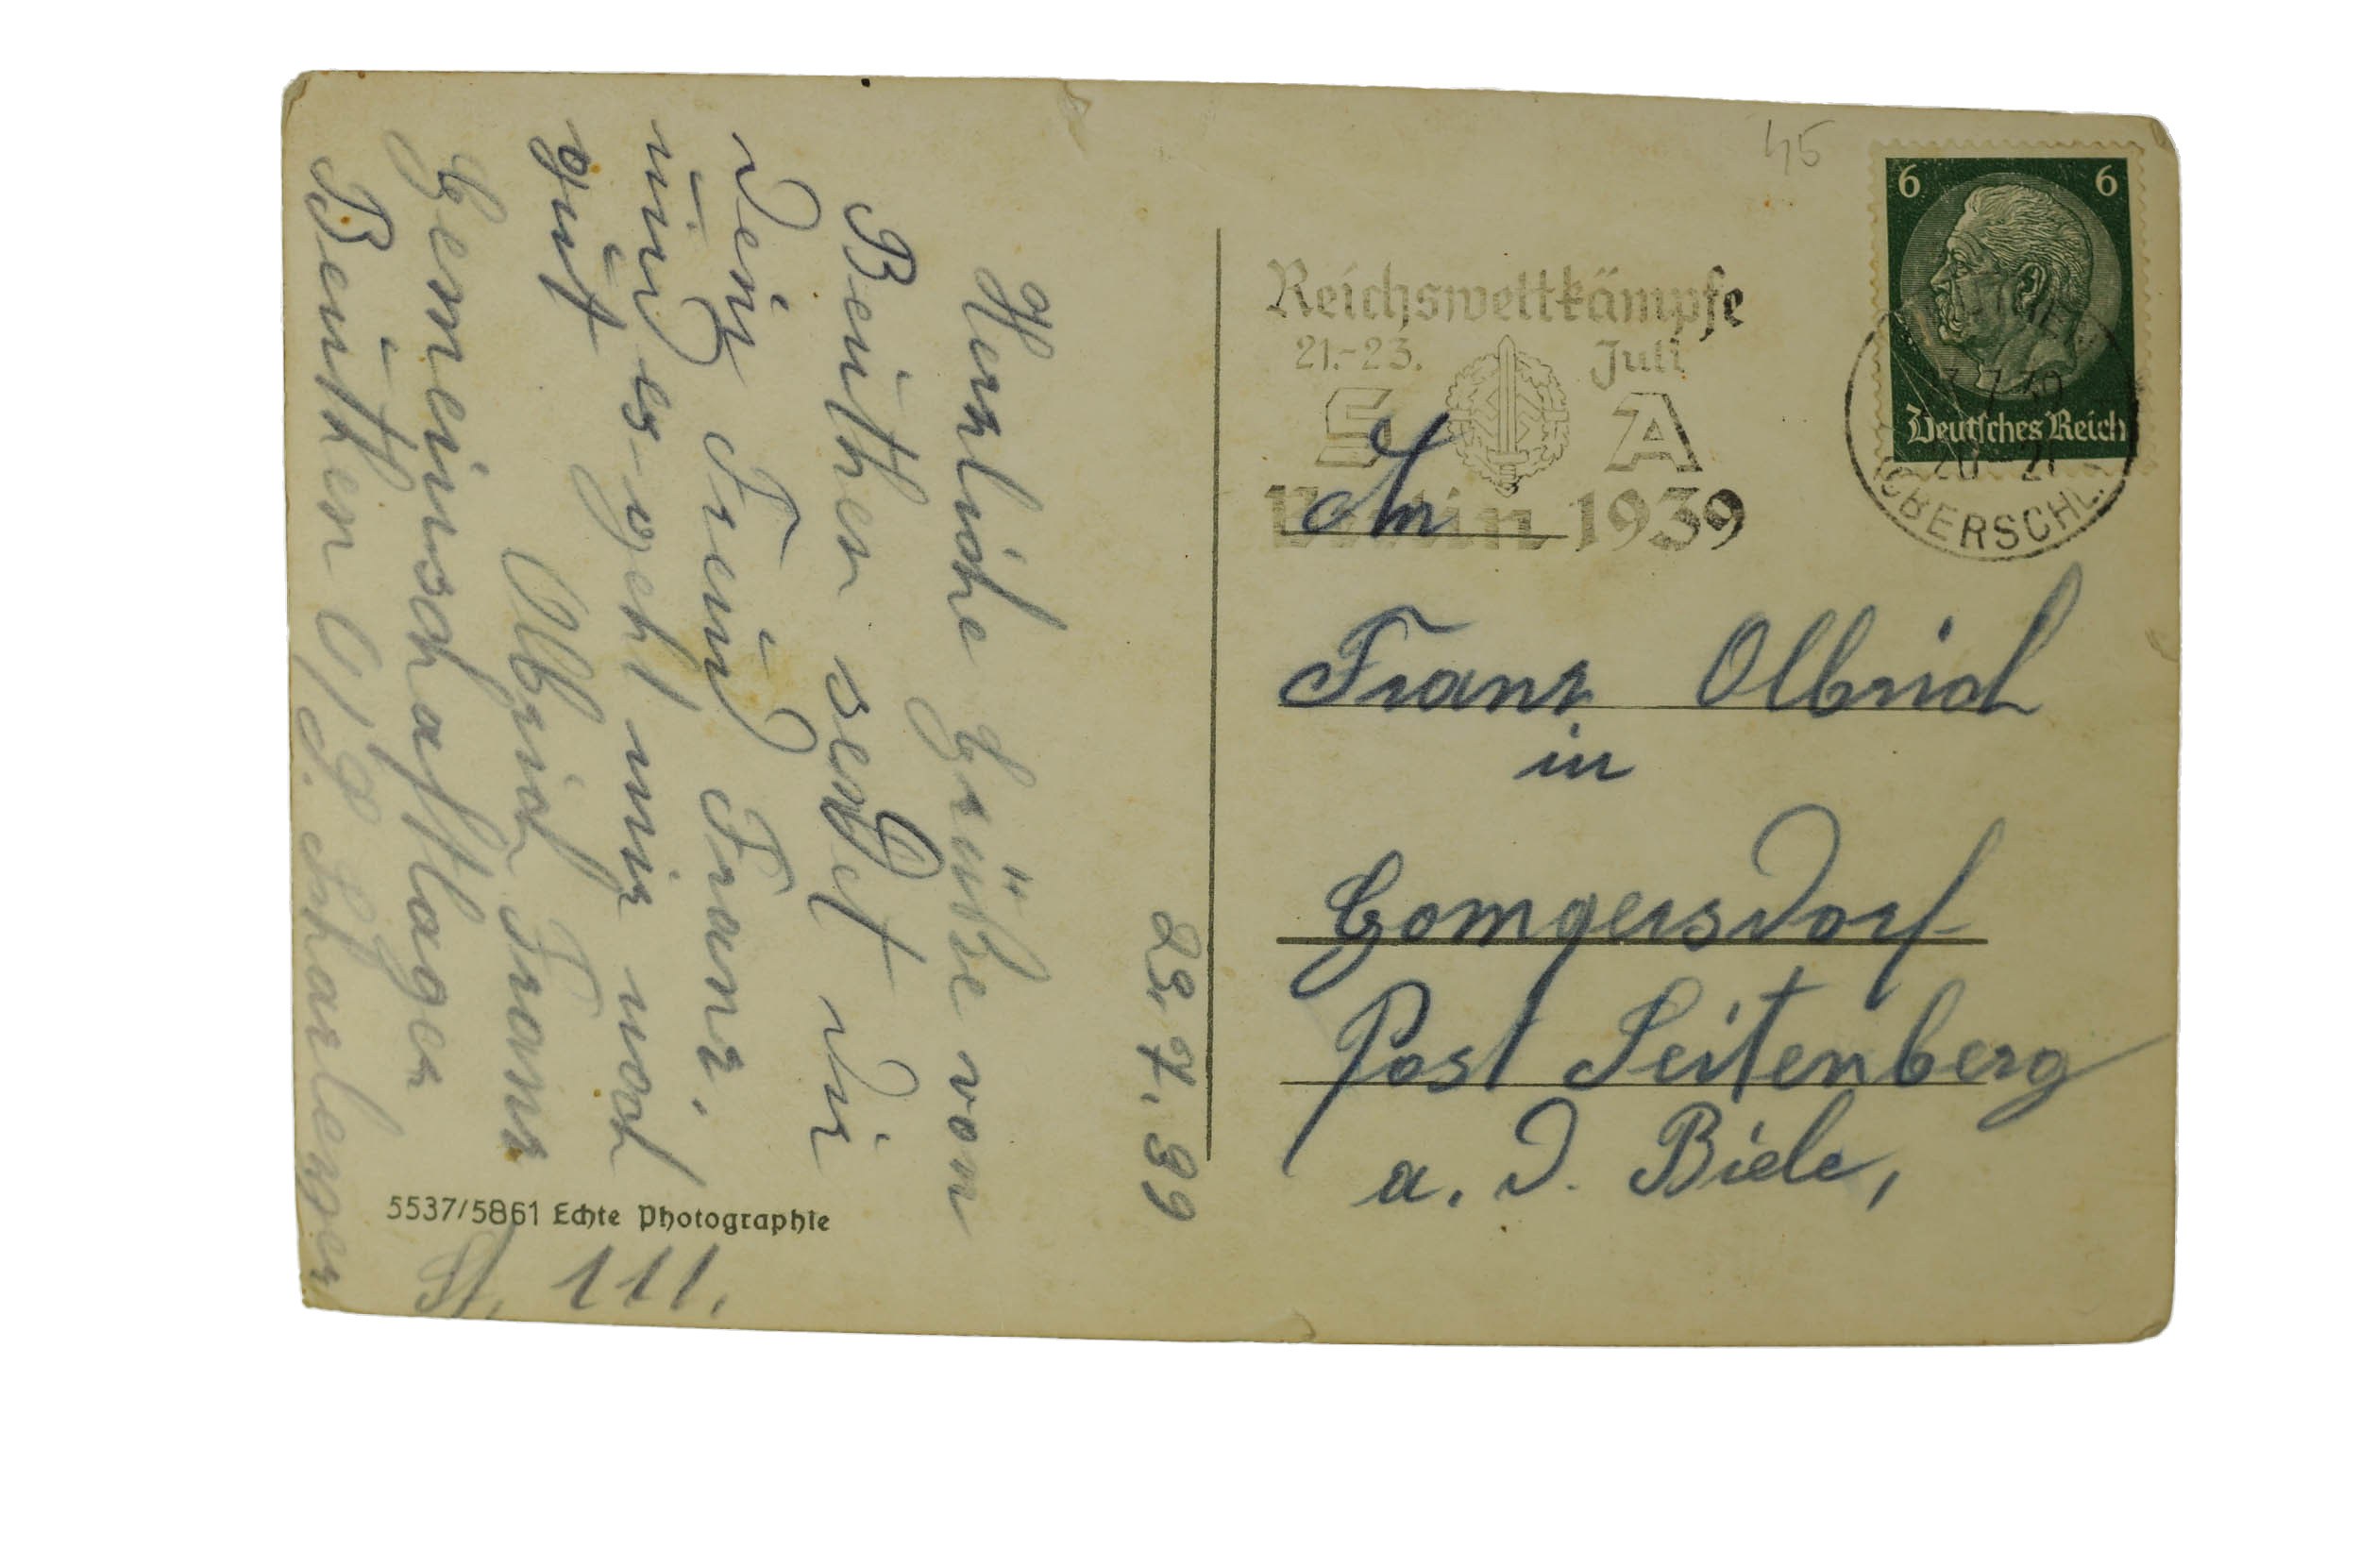 23. 7. 39
Herzliche Grüße von
Beuthen sendet dir
dein Freund Franz.
und es geht mir noch
gut
Olbrich Franz
Gemeinschaftlager
Beuthen O/S. Scharleyer
St. 111.
5537/5861 Echte Photographie
45
6 6
Deutsches Reich
Reichswettkämpfe
21.-23. Juli
S A
Berlin 1939
7.39
20-21
(OBERSCHL.)
An
Franz Olbrich
in
Gomgersdorf
Post Seitenberg
a. d. Biele,